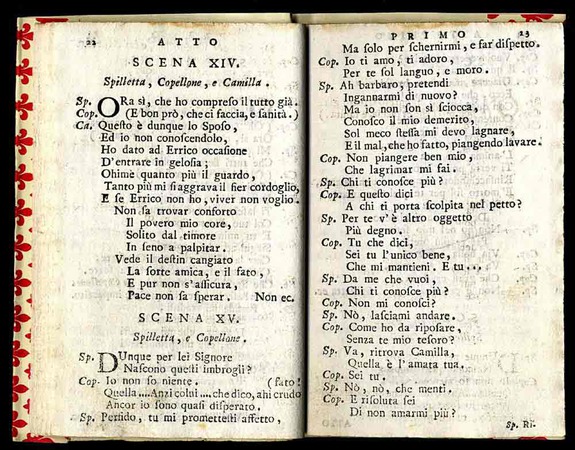 22 ATTO
SCENA XIV.
Spilletta, Copellone, e Camilla.
Sp. ORa sì, che ho compreſo il tutto già.
Cop. (E bon prò, che ci faccia, e ſanità.)
Ca. Queſto è dunque lo Spoſo,
Ed io non conoſcendolo,
Ho dato ad Errico occaſione
D'entrare in geloſia;
Ohime quanto più il guardo,
Tanto più mi ſi aggrava il fier cordoglio,
E ſe Errico non ho, viver non voglio.
Non ſa trovar conforto
Il povero mio core,
Solito dal timore
In ſeno a palpitar.
Vede il deſtin cangiato
La ſorte amica, e il fato,
E pur non s'aſſicura,
Pace non ſa ſperar. Non ec.
SCENA XV.
Spilletta, e Copellone.
Sp. DUnque per lei Signore
Naſcono queſti imbrogli?
Cop. Io non ſo niente. (fato!
Quella .... Anzi colui .... che dico, ahi crudo
Ancor io ſono quaſi diſperato.
Sp. Perfido, tu mi prometteſti affetto,
PRIMO 23
Ma ſolo per ſchernirmi, e far diſpetto.
Cop. Io ti amo, ti adoro,
Per te ſol languo, e moro.
Sp. Ah barbaro; pretendi
Ingannarmi di nuovo?
Ma io non ſon sì ſciocca,
Conoſco il mio demerito,
Sol meco ſteſſa mi devo lagnare,
E il mal, che ho fatto, piangendo lavare.
Cop. Non piangere ben mio,
Che lagrimar mi fai.
Sp. Chi ti conoſce più?
Cop. E queſto dici
A chi ti porta ſcolpita nel petto?
Sp. Per te v'è altro oggetto
Più degno.
Cop. Tu che dici,
Sei tu l'unico bene,
Che mi mantieni. E tu...
Sp. Da me che vuoi,
Chi ti conoſce più?
Cop. Non mi conoſci?
Sp. Nò, laſciami andare.
Cop. Come ho da ripoſare,
Senza te mio teſoro?
Sp. Va, ritrova Camilla,
Quella è l'amata tua.
Cop. Sei tu.
Sp. Nò, nò, che menti.
Cop. E riſoluta ſei
Di non amarmi più?
Sp. Ri-